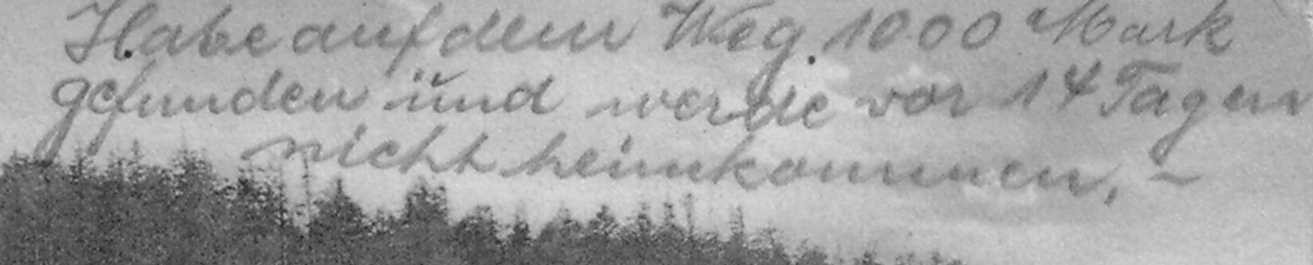 Habe auf dem Weg 1000 Mark
gefunden und werde vor 14 Tagen
nicht heimkommen, –